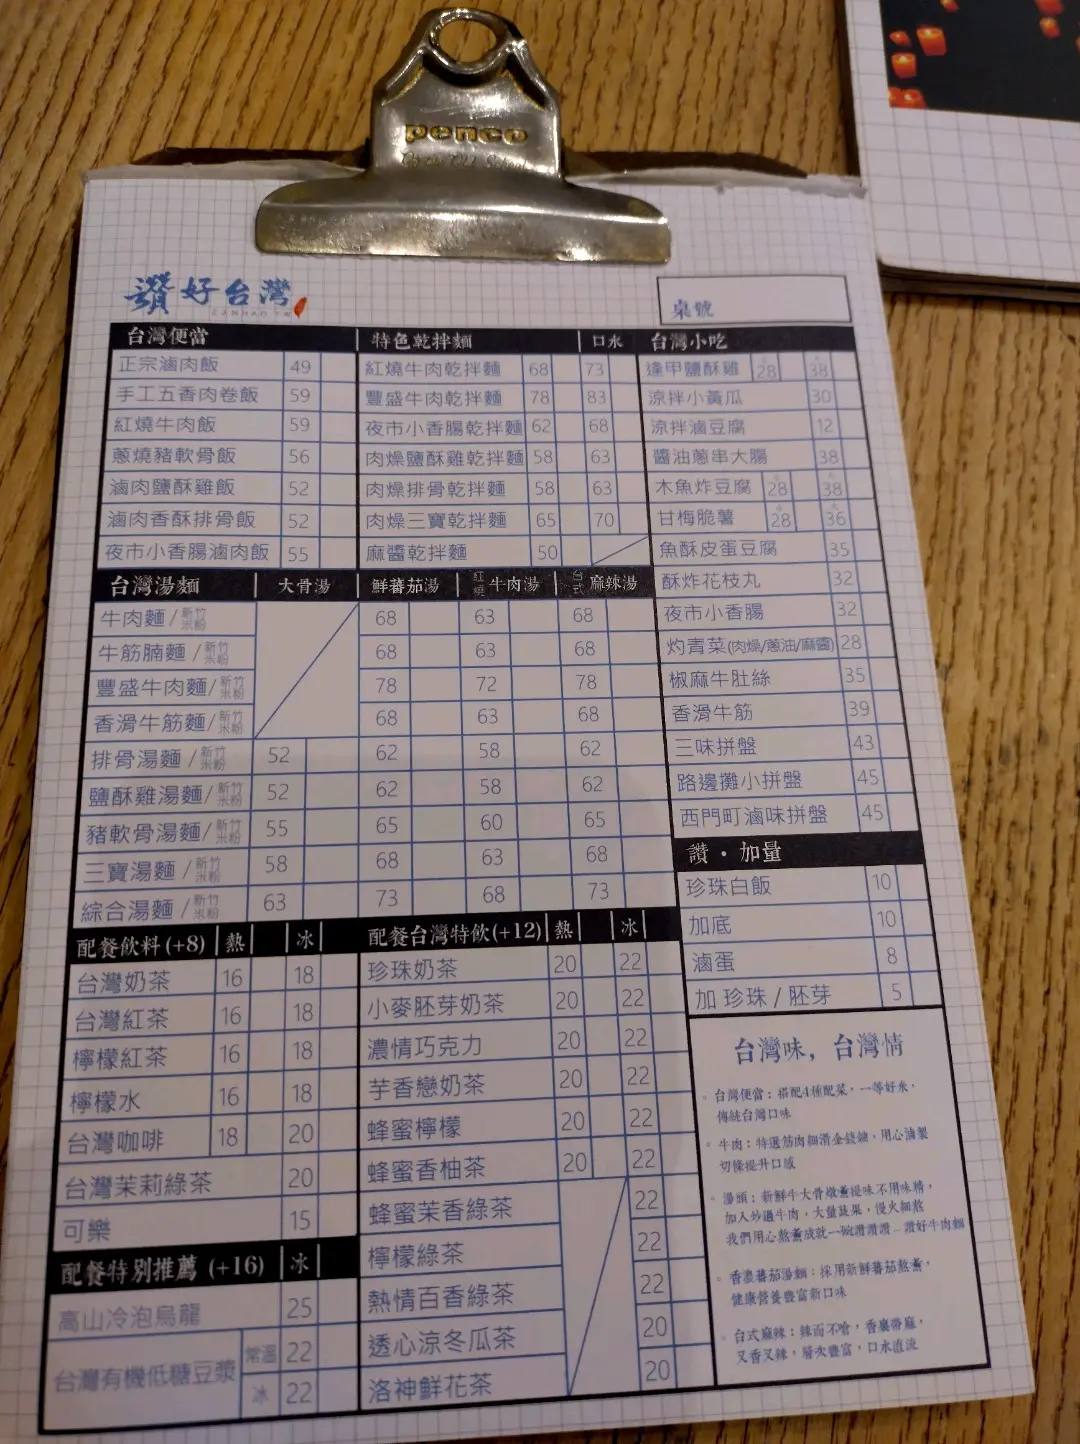 penco
讚好台灣
ZANHAO.TW
桌號
台灣便當
正宗滷肉飯 49
手工五香肉卷飯 59
紅燒牛肉飯 59
蔥燒豬軟骨飯 56
滷肉鹽酥雞飯 52
滷肉香酥排骨飯 52
夜市小香腸滷肉飯 55
特色乾拌麵 口水
紅燒牛肉乾拌麵 68 73
豐盛牛肉乾拌麵 78 83
夜市小香腸乾拌麵 62 68
肉燥鹽酥雞乾拌麵 58 63
肉燥排骨乾拌麵 58 63
肉燥三寶乾拌麵 65 70
麻醬乾拌麵 50
台灣小吃
逢甲鹽酥雞 28 38
涼拌小黃瓜 30
涼拌滷豆腐 12
醬油蔥串大腸 38
木魚炸豆腐 28 38
甘梅脆薯 28 36
魚酥皮蛋豆腐 35
酥炸花枝丸 32
夜市小香腸 32
灼青菜(肉燥/蔥油/麻醬) 28
椒麻牛肚絲 35
香滑牛筋 39
三味拼盤 43
路邊攤小拼盤 45
西門町滷味拼盤 45
台灣湯麵 大骨湯 鮮蕃茄湯 紅燒牛肉湯 台式麻辣湯
牛肉麵/新竹米粉 68 63 68
牛筋腩麵/新竹米粉 68 63 68
豐盛牛肉麵/新竹米粉 78 72 78
香滑牛筋麵/新竹米粉 68 63 68
排骨湯麵/新竹米粉 52 62 58 62
鹽酥雞湯麵/新竹米粉 52 62 58 62
豬軟骨湯麵/新竹米粉 55 65 60 65
三寶湯麵/新竹米粉 58 68 63 68
綜合湯麵/新竹米粉 63 73 68 73
讚·加量
珍珠白飯 10
加底 10
滷蛋 8
加 珍珠 / 胚芽 5
配餐飲料(+8) 熱 冰
台灣奶茶 16 18
台灣紅茶 16 18
檸檬紅茶 16 18
檸檬水 16 18
台灣咖啡 18 20
台灣茉莉綠茶 20
可樂 15
配餐特別推薦 (+16) 冰
高山冷泡烏龍 25
台灣有機低糖豆漿 常溫 22
冰 22
配餐台灣特飲(+12) 熱 冰
珍珠奶茶 20 22
小麥胚芽奶茶 20 22
濃情巧克力 20 22
芋香戀奶茶 20 22
蜂蜜檸檬 20 22
蜂蜜香柚茶 20 22
蜂蜜茉香綠茶 22
檸檬綠茶 22
熱情百香綠茶 22
透心涼冬瓜茶 20
洛神鮮花茶 20
台灣味，台灣情
台灣便當：搭配4種配菜，一等好米，
傳統台灣口味
牛肉：特選筋肉細滑金錢𦟌，用心滷製
切條提升口感
湯頭：新鮮牛大骨燉薰提味不用味精，
加入炒過牛肉，大量蔬果，慢火細熬
我們用心熬薰成就一碗讚讚讚－讚好牛肉麵
香濃蕃茄湯麵：採用新鮮蕃茄熬薰，
健康營養豐富新口味
台式麻辣：辣而不嗆，香裏帶麻，
又香又辣，層次豐富，口水直流